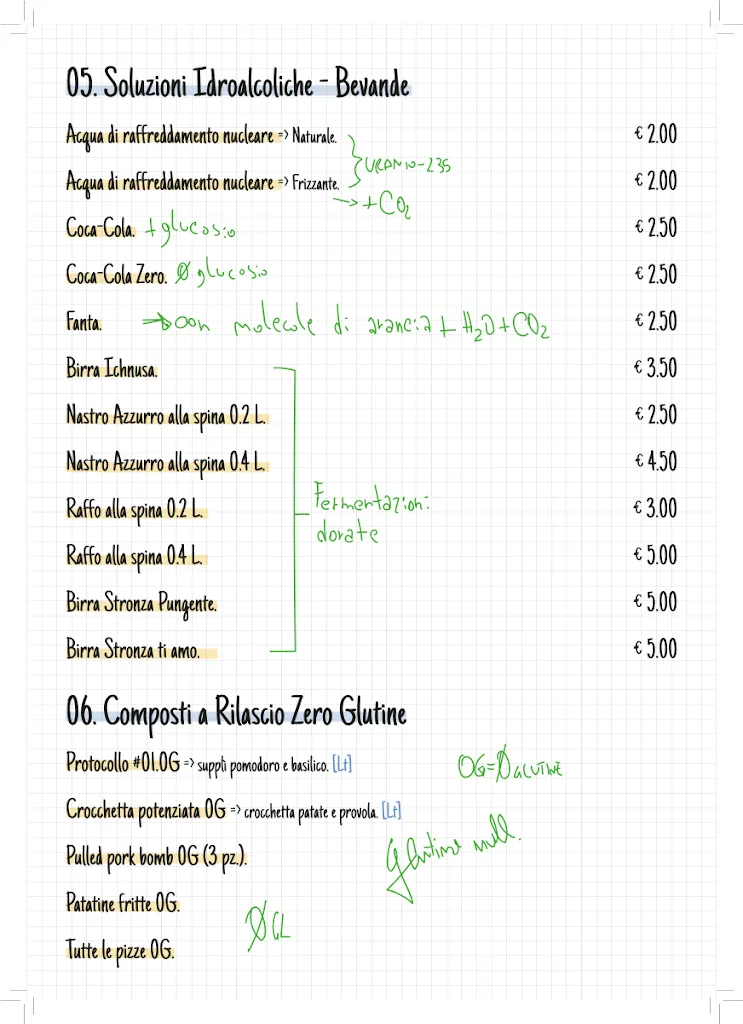 05. Soluzioni Idroalcoliche - Bevande
Acqua di raffreddamento nucleare => Naturale. € 2.00
URANIO-235
Acqua di raffreddamento nucleare => Frizzante. € 2.00
→ + CO₂
Coca-Cola. + glucosio € 2.50
Coca-Cola Zero. Ø glucosio € 2.50
Fanta. → con molecole di arancia + H₂O + CO₂ € 2.50
Birra Ichnusa. € 3.50
Nastro Azzurro alla spina 0.2 L. € 2.50
Nastro Azzurro alla spina 0.4 L. € 4.50
Raffo alla spina 0.2 L. € 3.00
Fermentazioni
dorate
Raffo alla spina 0.4 L. € 5.00
Birra Stronza Pungente. € 5.00
Birra Stronza ti amo. € 5.00
06. Composti a Rilascio Zero Glutine
Protocollo #01.0G => supplì pomodoro e basilico. [Lt]
0G=Ø GLUTINE
Crocchetta potenziata 0G => crocchetta patate e provola. [Lt]
glutine null.
Pulled pork bomb 0G (3 pz.).
Patatine fritte 0G.
Ø GL
Tutte le pizze 0G.